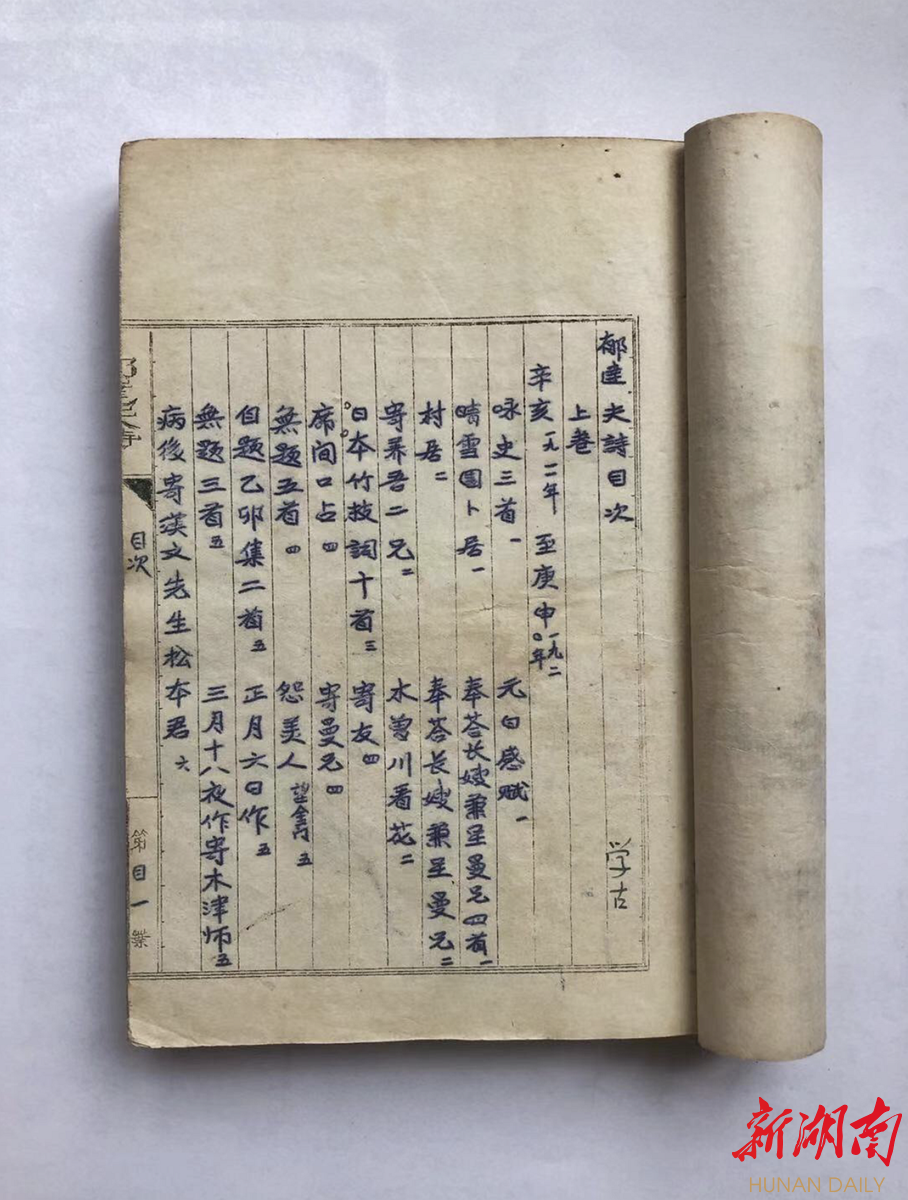 郁達夫詩目次
学古
上卷
辛亥一九一一年 至庚申一九二〇年
咏史三首一 元日感赋一
晴雪園卜居一 奉荅长嫂兼呈曼兄四首一
村居二 奉荅长嫂兼呈曼兄二
寄养吾二兄二 木曽川看花二
日本竹枝詞十首三 寄友四
席间口占四 寄曼兄四
無题五首四 怨美人 五
自题乙卯集二首五 正月六日作五
無题三首五 三月十八夜作寄木津师五
病後寄漢文先生松本君六
目次
第目一葉
新湖南
HUNAN DAILY